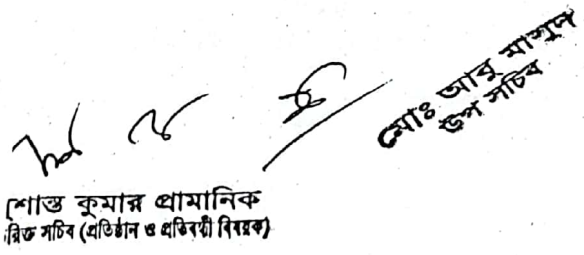 মোঃ আবু মাসুদ
উপ সচিব
শান্ত কুমার প্রামানিক
রিক্ত সচিব (প্রতিষ্ঠান ও প্রতিবন্ধী বিষয়ক)